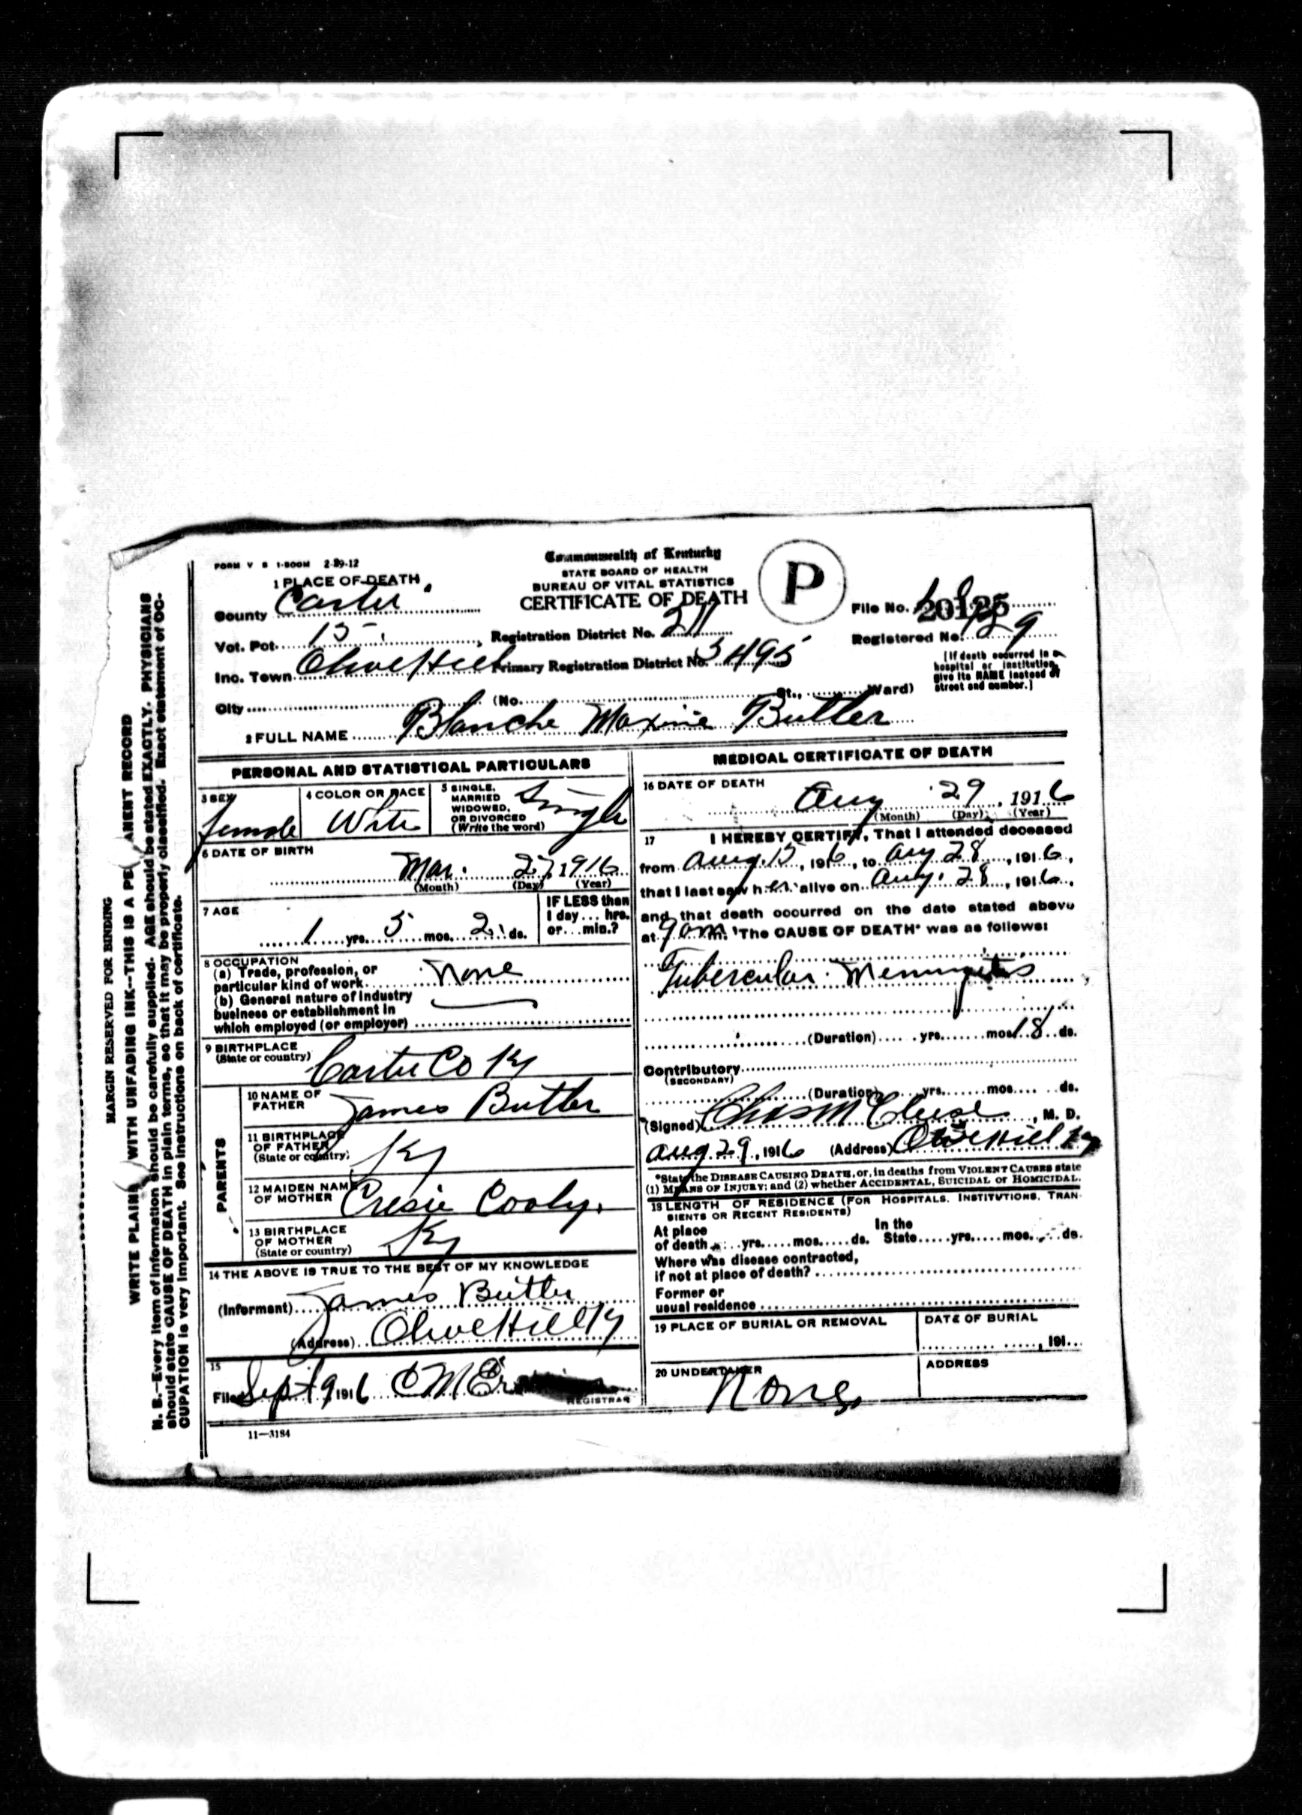 FORM V S 1-500M 2-29-12
Commonwealth of Kentucky
STATE BOARD OF HEALTH
BUREAU OF VITAL STATISTICS
CERTIFICATE OF DEATH
P
1 PLACE OF DEATH
County Carter
Vot. Pct. 15
Inc. Town Olive Hill
City
Registration District No. 211
Primary Registration District No. 3495
(No. St., Ward)
File No. 20125
Registered No. 129
[If death occurred in a
hospital or institution,
give its NAME instead of
street and number.]
2 FULL NAME Blanche Maxine Butler
PERSONAL AND STATISTICAL PARTICULARS
3 SEX
female
4 COLOR OR RACE
Wite
5 SINGLE,
MARRIED
WIDOWED,
OR DIVORCED
(Write the word)
Single
6 DATE OF BIRTH
Mar. 27, 1916
(Month) (Day) (Year)
7 AGE
1 yrs. 5 mos. 2 ds.
IF LESS than
1 day... hrs.
or...min.?
8 OCCUPATION
(a) Trade, profession, or
particular kind of work None
(b) General nature of industry
business or establishment in
which employed (or employer)
9 BIRTHPLACE
(State or country)
Carter Co Ky
PARENTS
10 NAME OF
FATHER
James Butler
11 BIRTHPLACE
OF FATHER
(State or country)
Ky
12 MAIDEN NAME
OF MOTHER
Cresie Cooly.
13 BIRTHPLACE
OF MOTHER
(State or country)
Ky
14 THE ABOVE IS TRUE TO THE BEST OF MY KNOWLEDGE
(Informant) James Butler
(Address) Olive Hill Ky
15
Filed Sept 9 1916
REGISTRAR
11—3184
MEDICAL CERTIFICATE OF DEATH
16 DATE OF DEATH
Aug 29, 1916
(Month) (Day) (Year)
17 I HEREBY CERTIFY, That I attended deceased
from Aug. 15, 1916, to Aug 28, 1916,
that I last saw h er alive on Aug. 28, 1916,
and that death occurred on the date stated above
at 9 am. The CAUSE OF DEATH* was as follows:
Tubercular Meningitis
(Duration) yrs. mos. 18 ds.
Contributory
(SECONDARY)
(Duration) yrs. mos. ds.
(Signed) , M. D.
Aug 29, 1916 (Address) Olive Hill Ky
*State the DISEASE CAUSING DEATH, or, in deaths from VIOLENT CAUSES state
(1) MEANS OF INJURY; and (2) whether ACCIDENTAL, SUICIDAL or HOMICIDAL.
18 LENGTH OF RESIDENCE (FOR HOSPITALS, INSTITUTIONS, TRAN-
SIENTS OR RECENT RESIDENTS)
At place In the
of death yrs. mos. ds. State yrs. mos. ds.
Where was disease contracted,
if not at place of death?
Former or
usual residence
19 PLACE OF BURIAL OR REMOVAL
DATE OF BURIAL
, 191
20 UNDERTAKER
None
ADDRESS
MARGIN RESERVED FOR BINDING
WRITE PLAINLY WITH UNFADING INK—THIS IS A PERMANENT RECORD
N. B.—Every item of information should be carefully supplied. AGE should be stated EXACTLY. PHYSICIANS
should state CAUSE OF DEATH in plain terms, so that it may be properly classified. Exact statement of OC-
CUPATION is very important. See instructions on back of certificate.